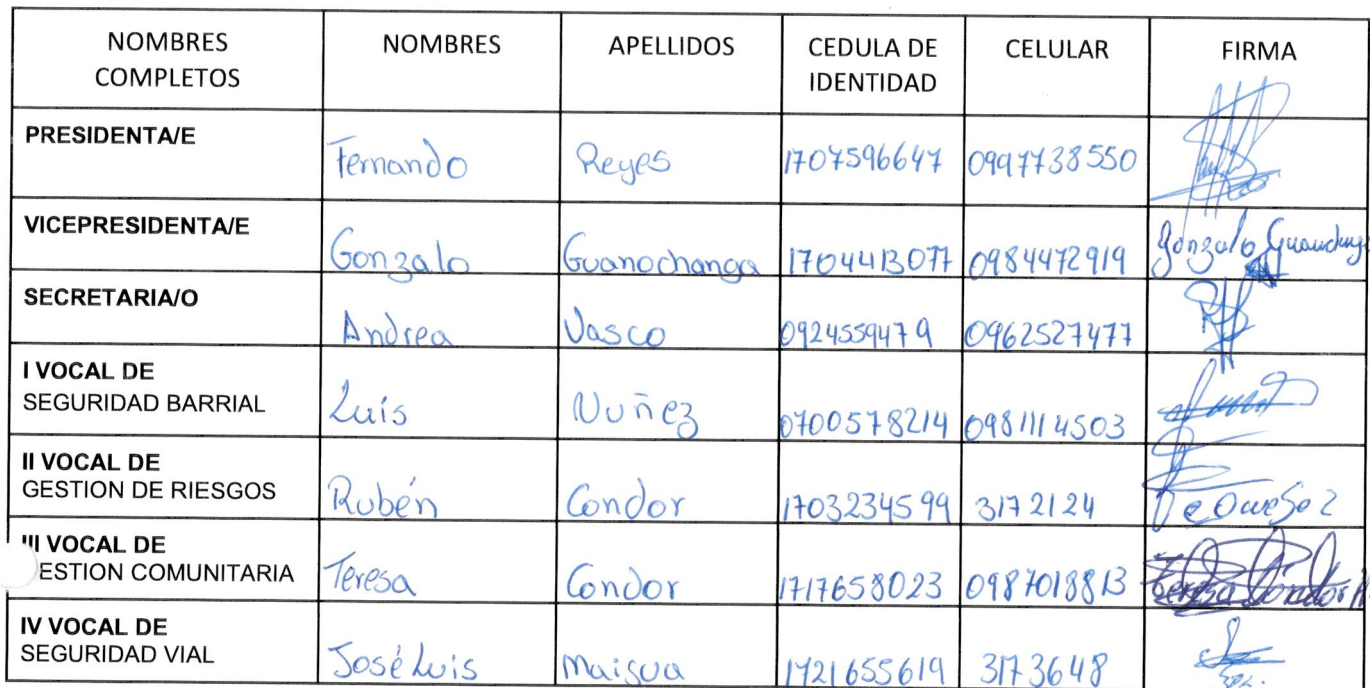 NOMBRES COMPLETOS NOMBRES APELLIDOS CEDULA DE IDENTIDAD CELULAR FIRMA
PRESIDENTA/E Fernando Reyes 1707596647 0997738550
VICEPRESIDENTA/E Gonzalo Guanochanga 1704413077 0984472919 Gonzalo
SECRETARIA/O Andrea Vasco 0924559479 0962527477
I VOCAL DE
SEGURIDAD BARRIAL Luís Nuñez 0700578214 0981114503
II VOCAL DE
GESTION DE RIESGOS Rubén Condor 1703234599 3172124
III VOCAL DE
ESTION COMUNITARIA Teresa Condor 1717658023 0987018813 Teresa Cóndor
IV VOCAL DE
SEGURIDAD VIAL José Luis Maisua 1721655619 3173648